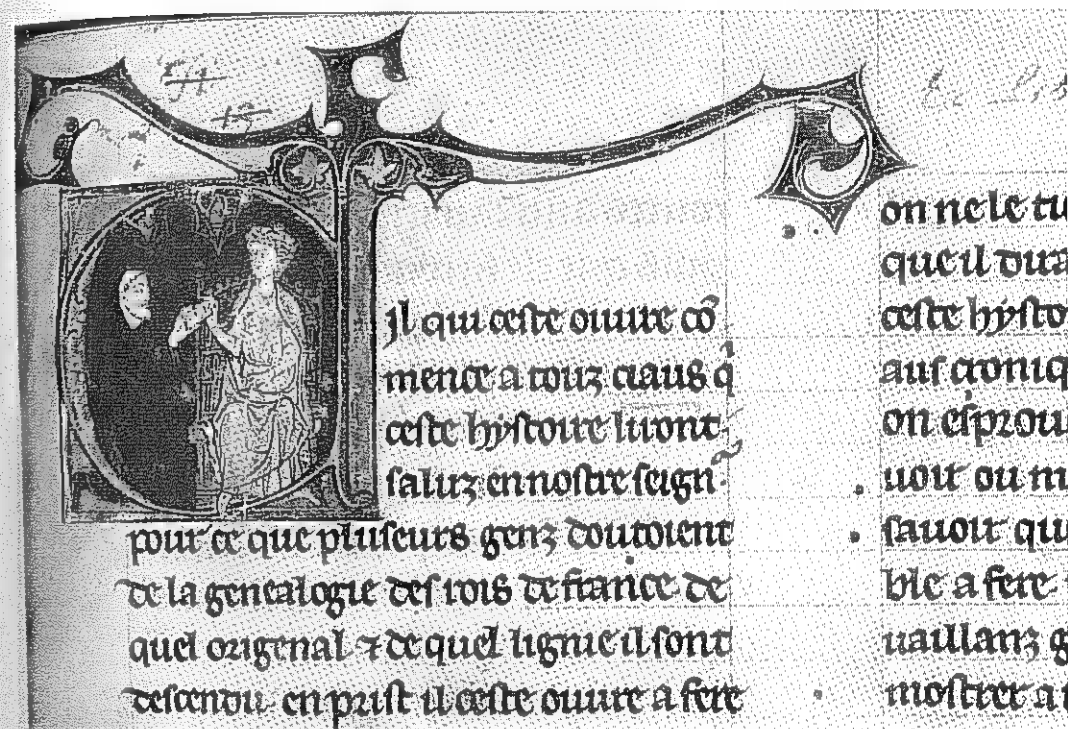 Cil qui ceste ouure cō
mence a touz ciaus q̄
ceste hystoire liront
saluz en nostre seign
pour ce que pluseurs genz doutoient
de la genealogie des rois de france de
quel original ⁊ de quel lignie il sont
descendu en prist il ceste ouure a fere
on ne le tu
que il dira
ceste hysto
aus croniq
on esprou
uoir ou m
sauoir qu
ble a fere
uaillanz g
mostrer a